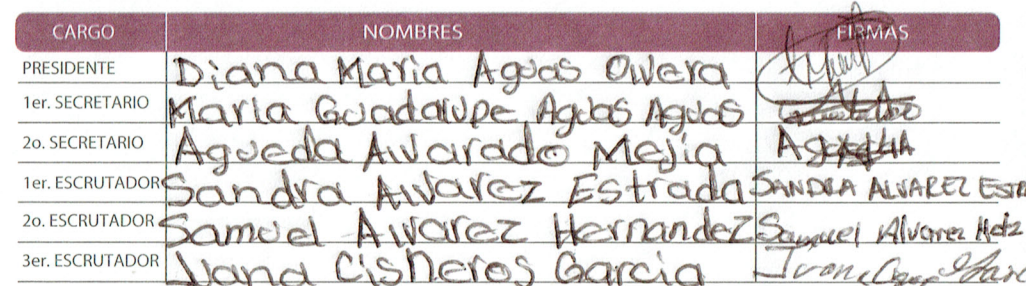 CARGO NOMBRES FIRMAS
PRESIDENTE Diana Maria Aguas Olvera
1er. SECRETARIO Maria Guadalupe Aguas Aguas
2o. SECRETARIO Agueda Alvarado Mejia
1er. ESCRUTADOR Sandra Alvarez Estrada SANDRA ALVAREZ EST
2o. ESCRUTADOR Samuel Alvarez Hernandez Samuel Alvarez Hdz
3er. ESCRUTADOR Ivana Cisneros Garcia